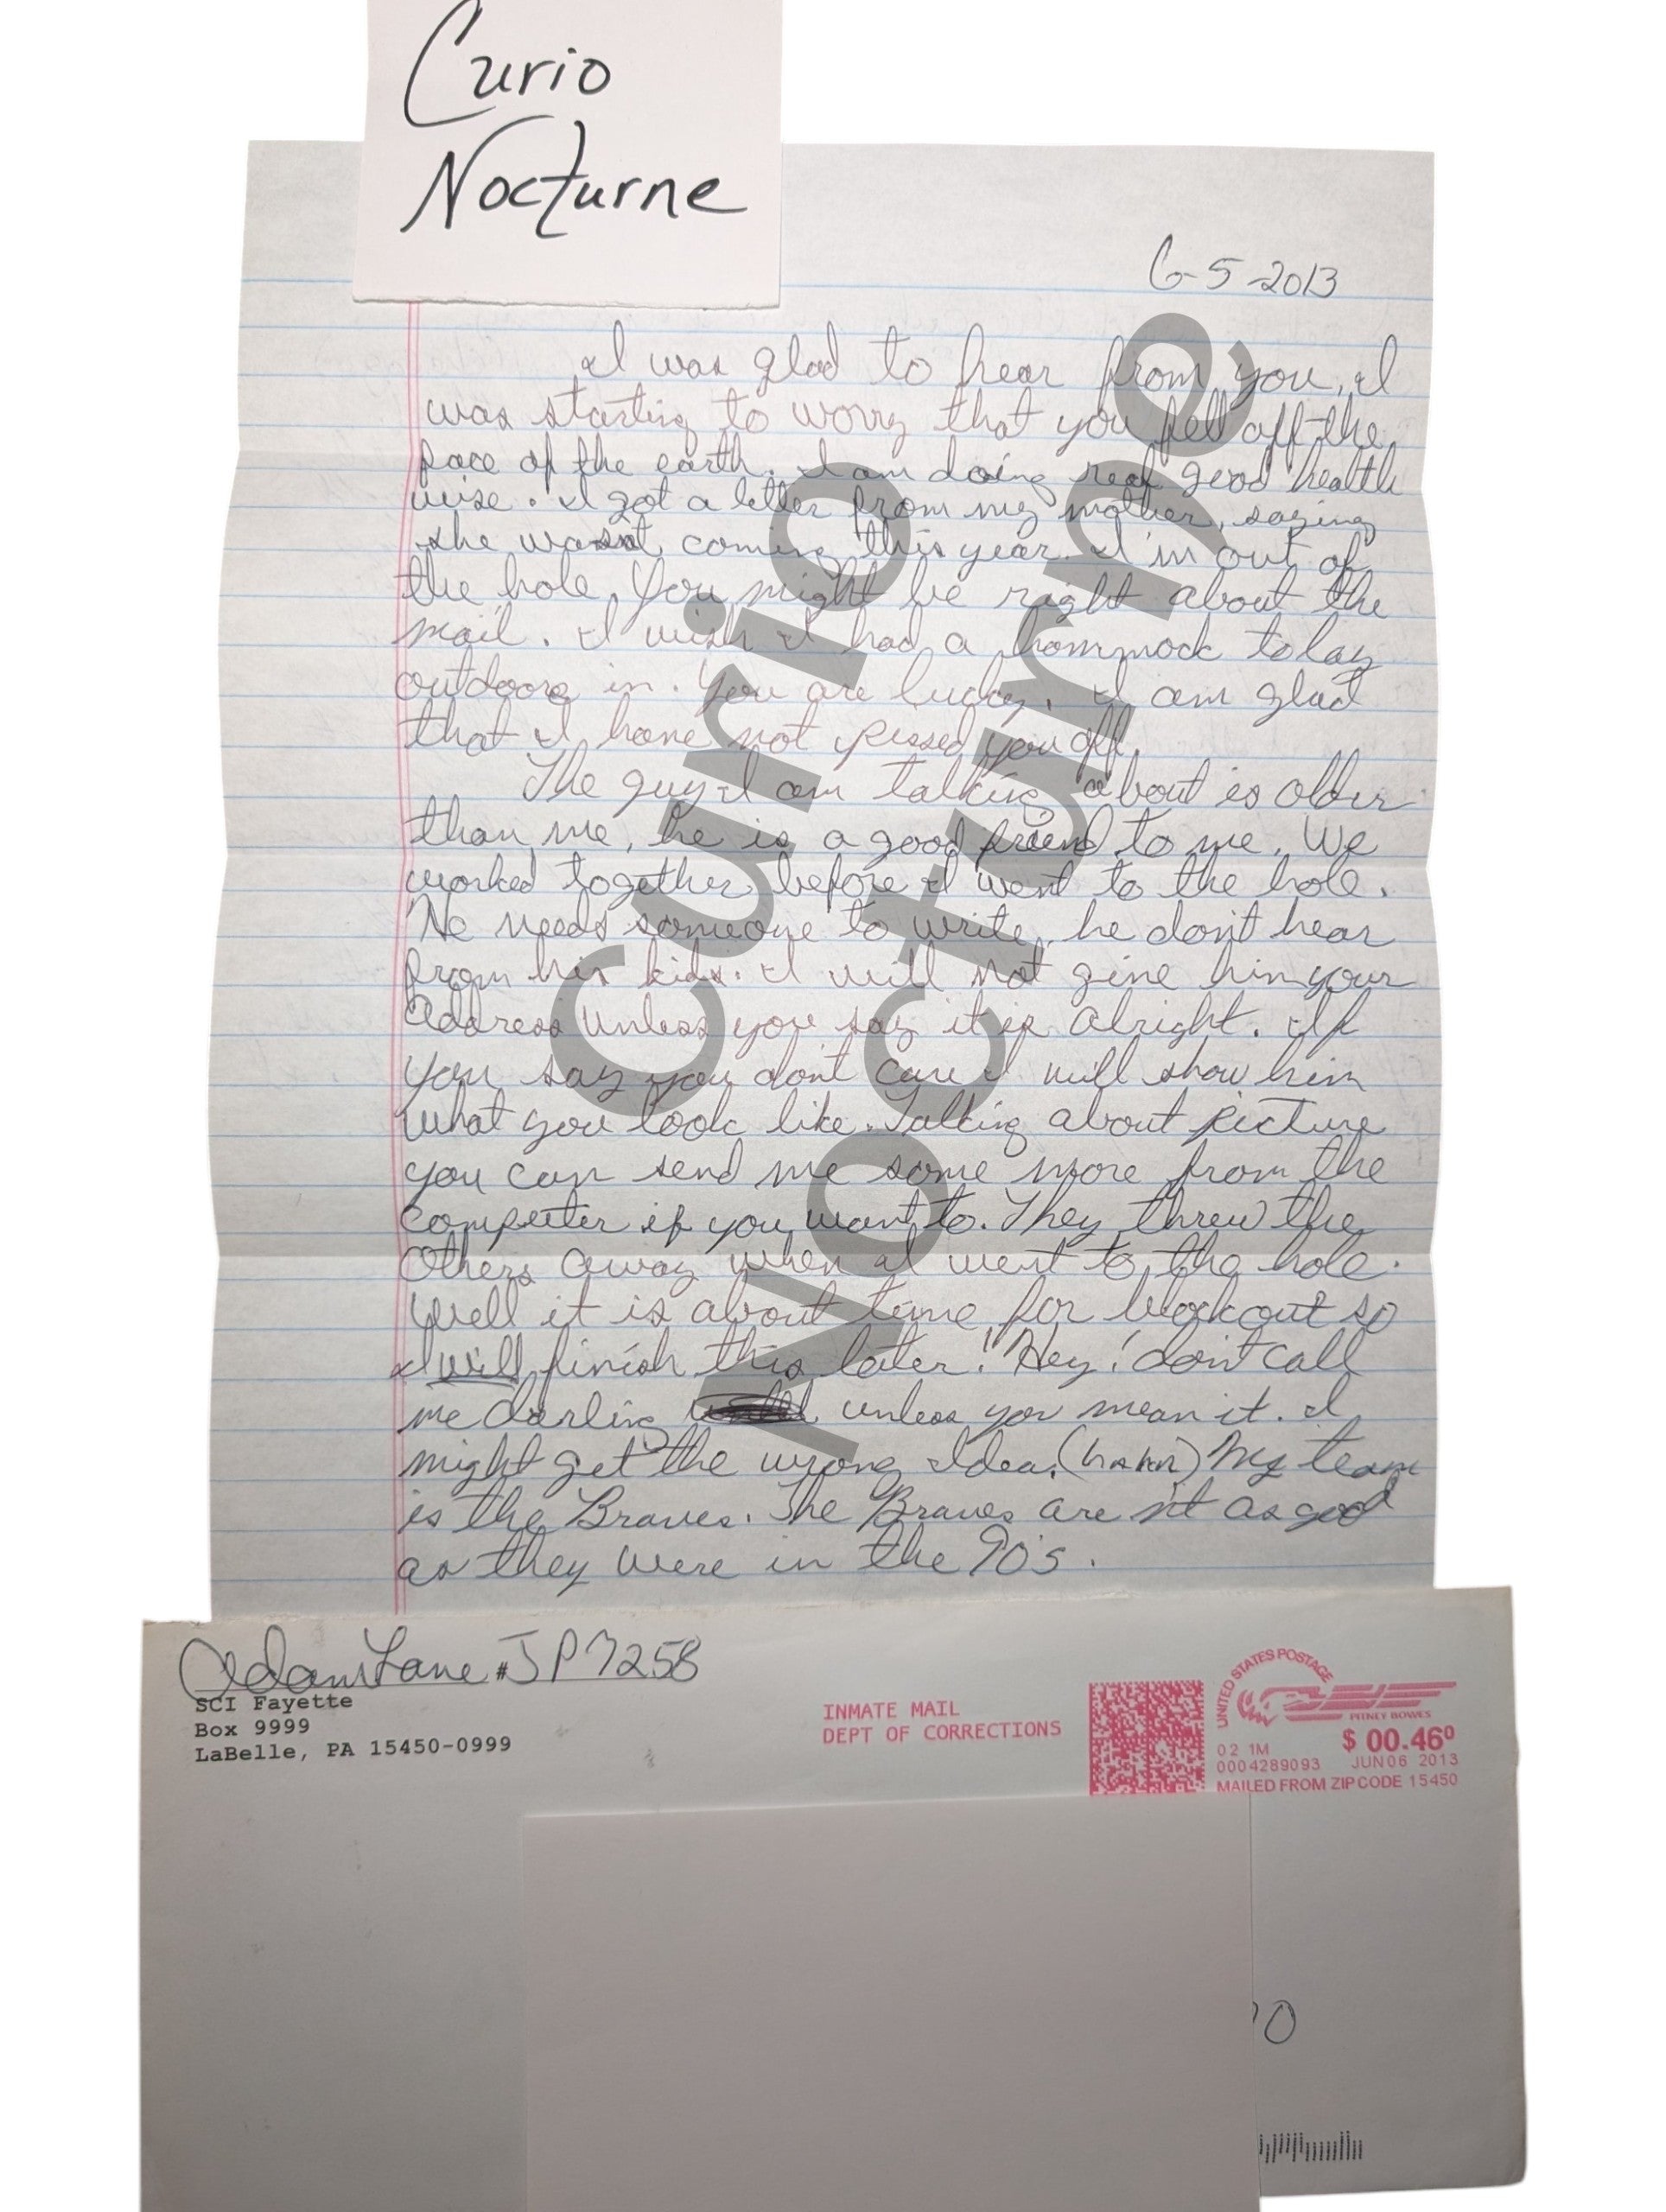 Curio
Nocturne
6-5-2013
I was glad to hear from you, I
was starting to worry that you fell off the
face of the earth. I am doing real good health
wise. I got a letter from my mother, saying
she wasn't coming this year. I'm out of
the hole. You might be right about the
mail. I wish I had a hommock to lay
outdoors in. You are lucky. I am glad
that I have not pissed you off.
The guy I am talking about is older
than me, he is a good friend to me. We
worked together before I went to the hole.
He needs someone to write, he don't hear
from his kids. I will not give him your
Address unless you say it is alright. If
you say you don't care I will show him
what you look like. Talking about picture
you can send me some more from the
computer if you want to. They threw the
others away when I went to the hole.
Well it is about time for blockout so
I will finish this later! Hey! don't call
me darling unless you mean it. I
might get the wrong Idea. (ha ha) My team
is the Braves. The Braves are n't as good
as they were in the 90's.
Curio
Nocturne
Adam Lane #JP7258
SCI Fayette
Box 9999
LaBelle, PA 15450-0999
INMATE MAIL
DEPT OF CORRECTIONS
UNITED STATES POSTAGE
PITNEY BOWES
$ 00.46⁰
02 1M
0004289093 JUN 06 2013
MAILED FROM ZIP CODE 15450